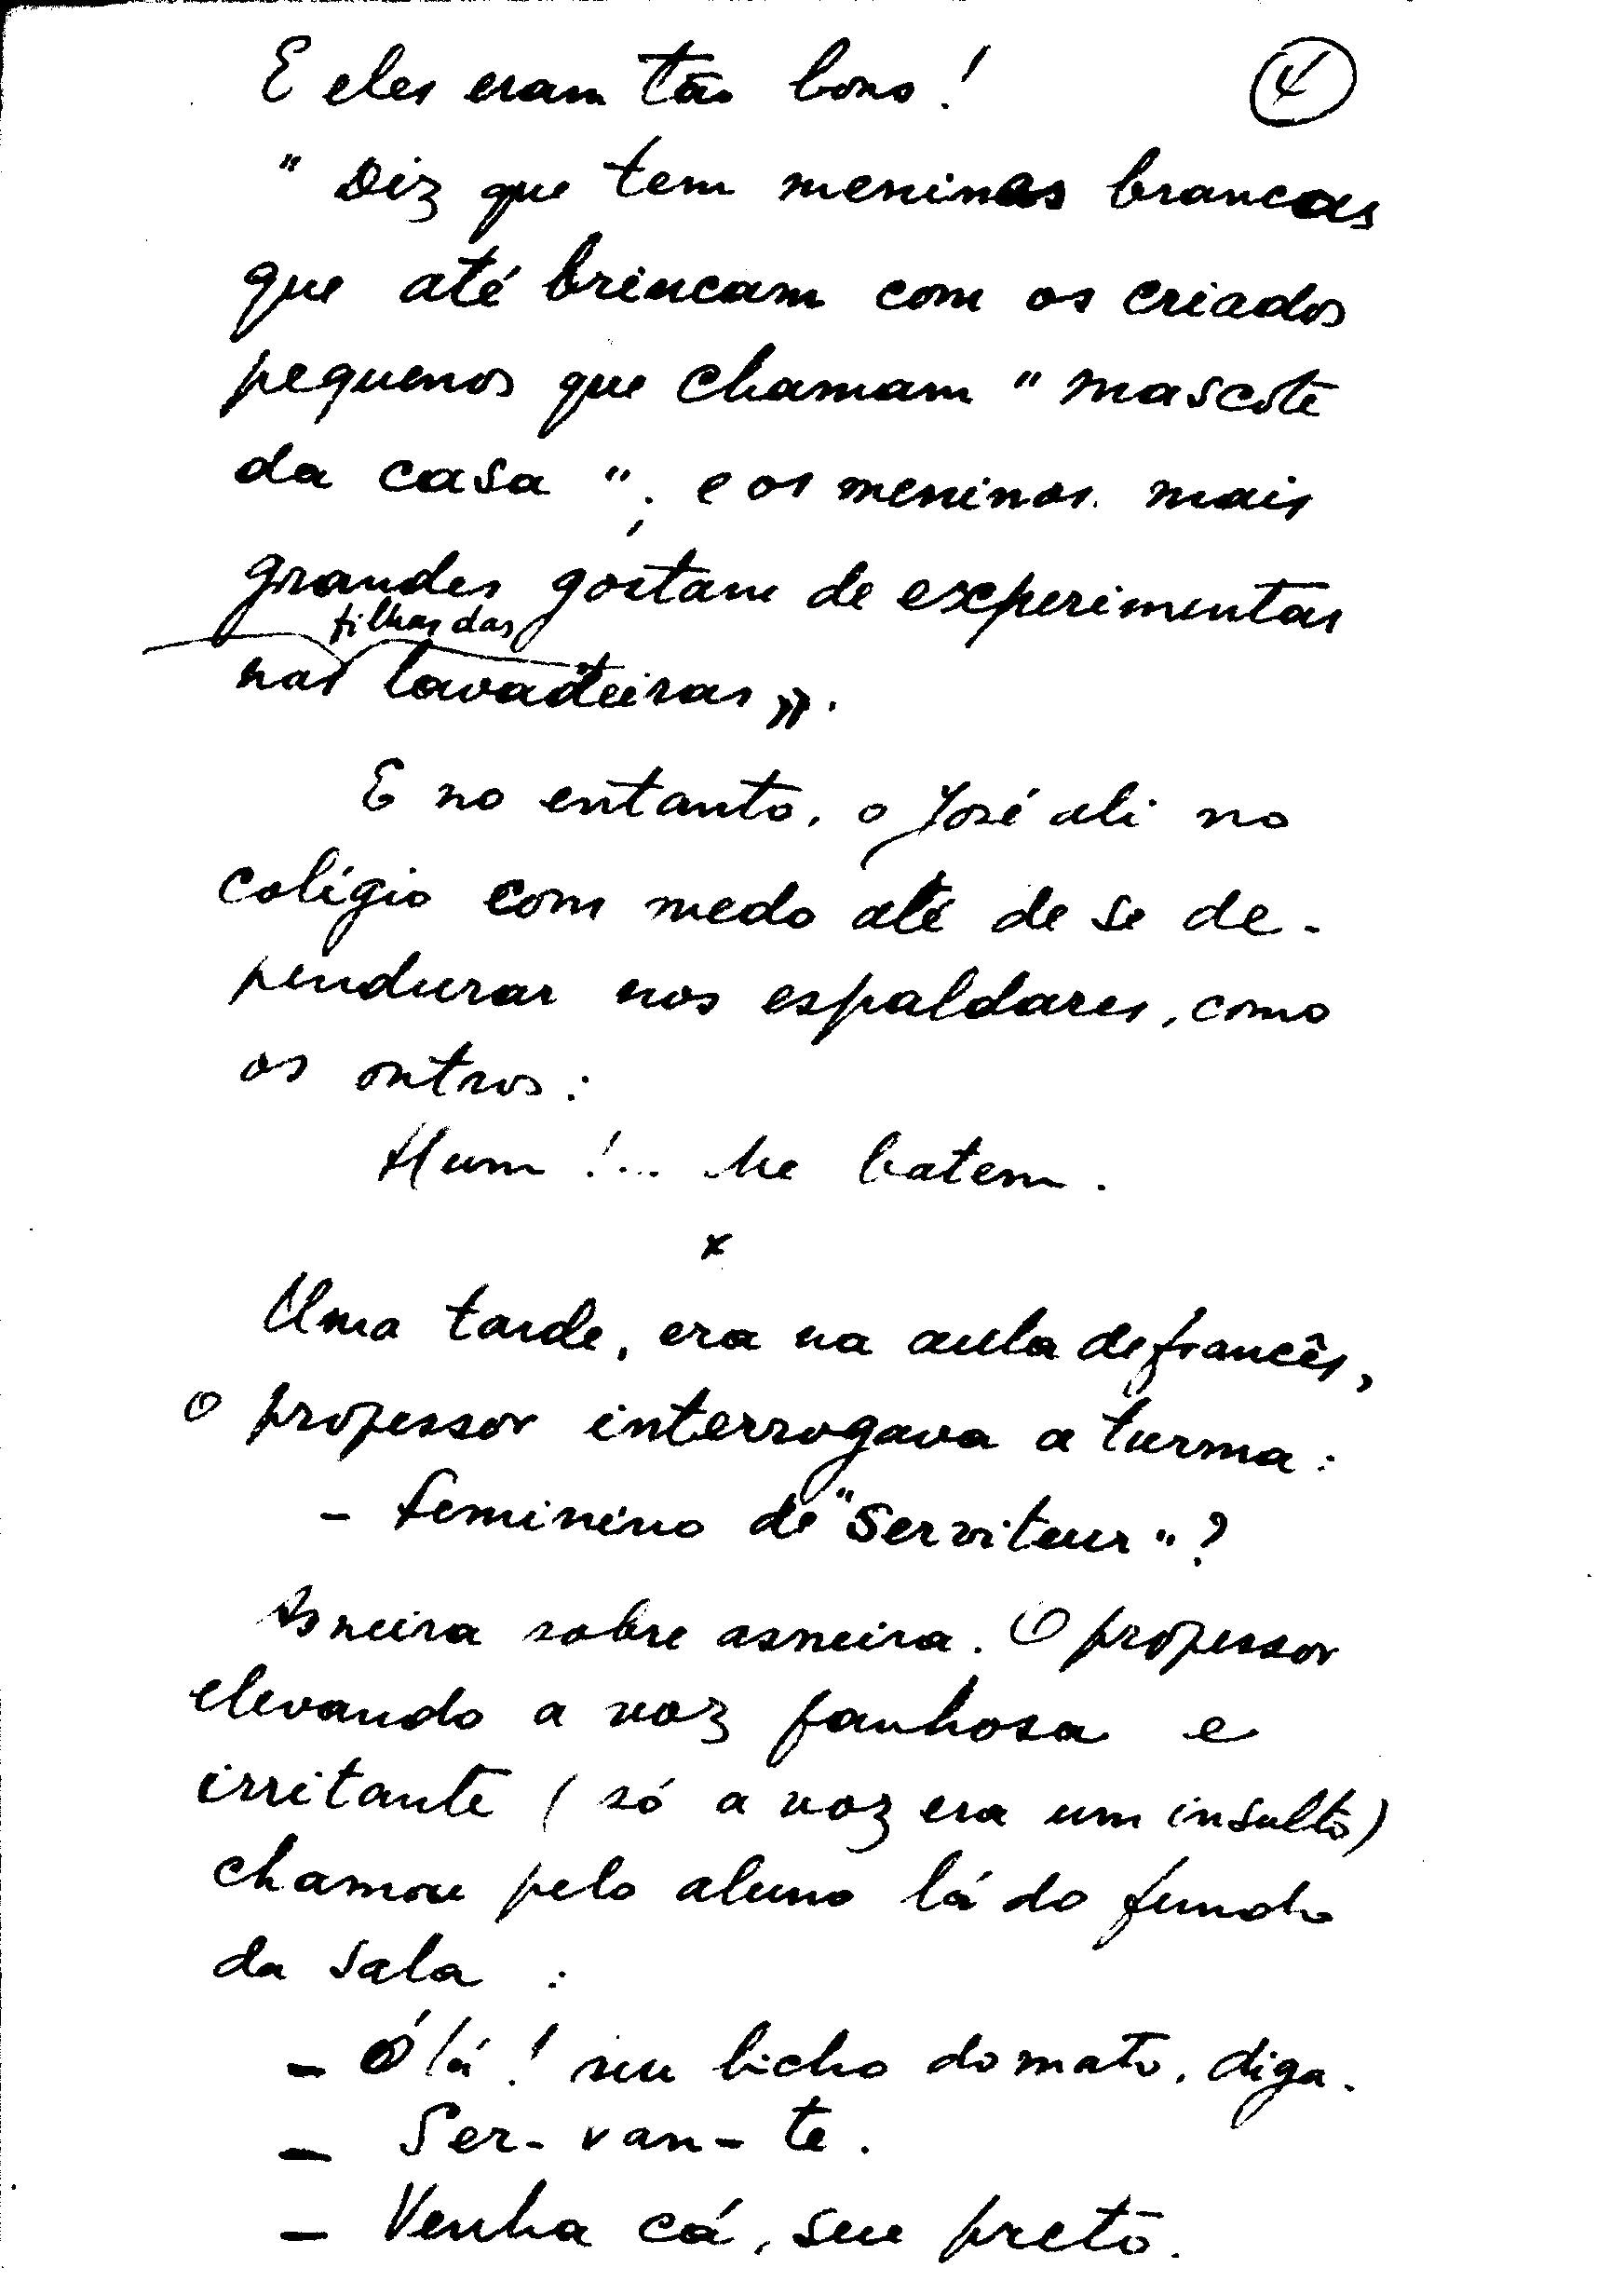 E eles eram tão bons!
④
" Diz que tem meninas brancas
que até brincam com os criados
pequenos que chamam " mascote
da casa "; e os meninos mais
grandes gostam de experimentar
filhas das
nas lavadeiras ».
E no entanto, o José ali no
colégio com medo até de se de-
pendurar nos espaldares, como
os outros:
Hum!... Me batem.
x
Uma tarde, era na aula de francês,
o professor interrogava a turma:
- Feminino de "Serviteur"?
Asneira sobre asneira. O professor
elevando a voz fanhosa e
irritante (só a voz era um insulto)
chamou pelo aluno lá do fundo
da sala :
- Ólá! seu bicho do mato, diga.
- Ser-van-te.
- Venha cá, seu preto.